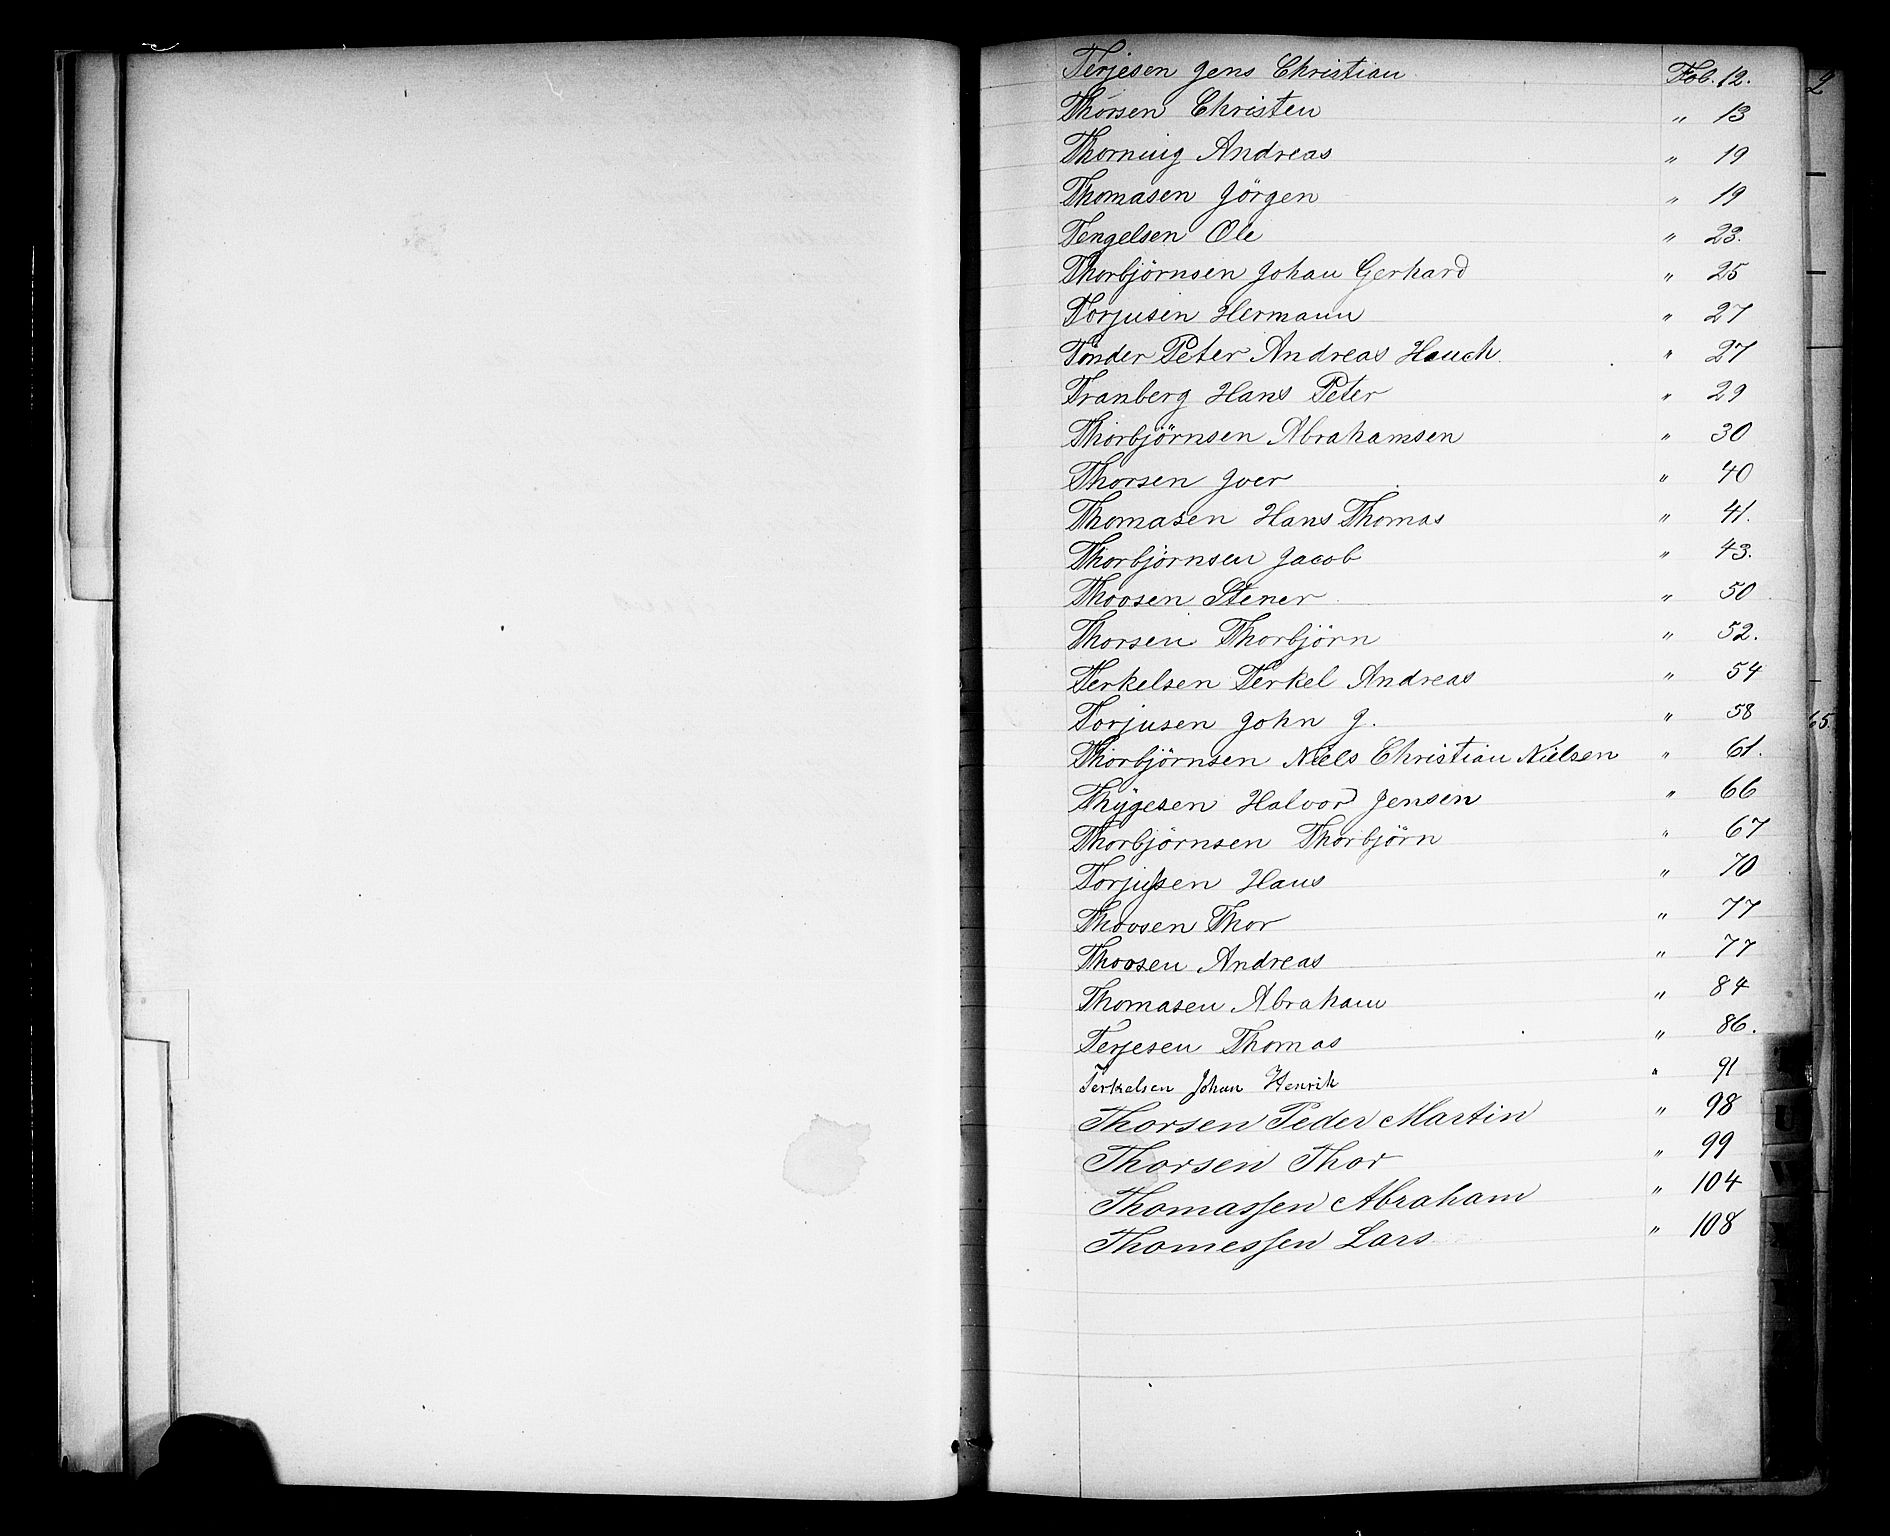 Terjesen Jens Christian Fol. 12.
Thorsen Christen " 13
Thorning Andreas " 19
Thomasen Jörgen " 19
Tengelsen Ole " 23.
Thorbjörnsen Johan Gerhard " 25
Torjusen Hermann " 27
Tönder Peter Andreas Hauch " 27
Tranberg Hans Peter " 29
Thorbjörnsen Abrahamsen " 30
Thorsen Iver " 40
Thomasen Hans Thomas " 41.
Thorbjörnsen Jacob " 43.
Thorsen Stener " 50
Thorsen Thorbjörn " 52.
Terkelsen Terkel Andreas " 54
Torjusen John J. " 58
Thorbjörnsen Niels Christian Nielsen " 61.
Thygesen Halvor Jensen " 66
Thorbjörnsen Thorbjörn " 67
Torjussen Hans " 70
Thorsen Thor " 77
Thorsen Andreas " 77
Thomasen Abraham " 84
Terjesen Thomas " 86.
Terkelsen Johan Henrik " 91
Thorsen Peder Martin " 98
Thorsen Thor " 99
Thomassen Abraham " 104
Thomessen Lars " 108
2
65.
U